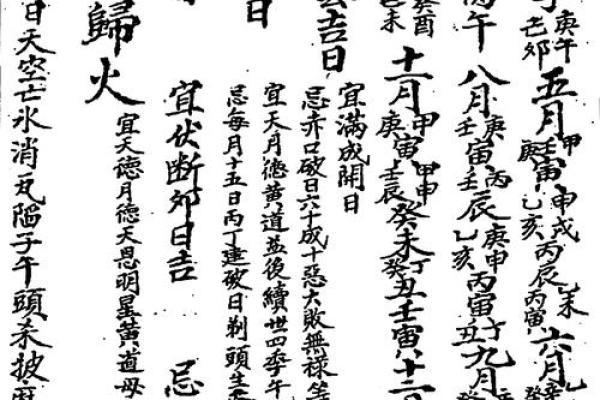 庚午
乙卯五月甲寅庚壬寅申戌乙亥丙辰乙未丙寅六月乙
午八月庚寅壬寅丙辰壬庚申乙亥丙寅丁丑九月
癸酉己未十一月甲寅庚甲申壬辰癸未丁丑癸壬寅十二
吉日
宜滿成開日
忌赤口破日六十成十惡大敗無祿等
日
宜天月德黃道益後續世四季午
忌每月十五日丙丁建破日剃頭生
宜伏断卯日吉 忌
歸火
宜天德月德天恩明星黃道母
日天空亡氷消瓦陷子午頭杀披麻